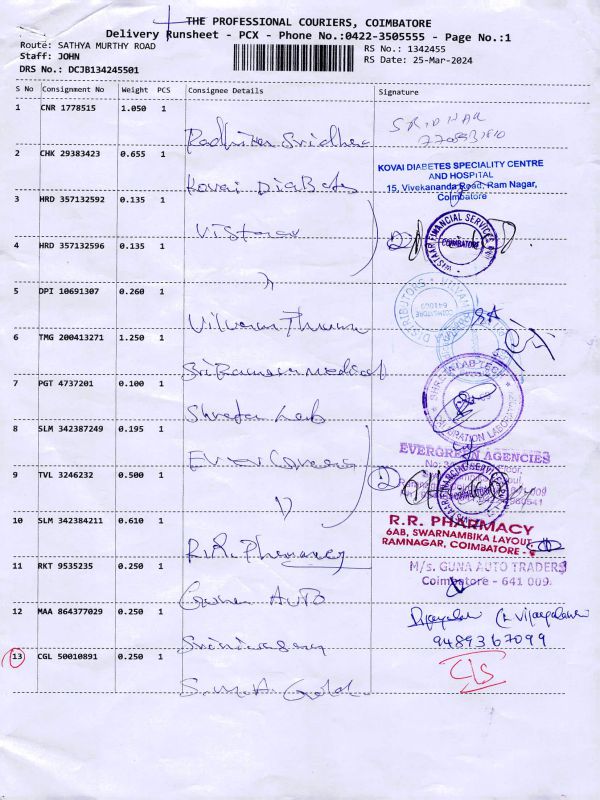 THE PROFESSIONAL COURIERS, COIMBATORE
Delivery Runsheet - PCX - Phone No.:0422-3505555 - Page No.:1
Route: SATHYA MURTHY ROAD
RS No.: 1342455
Staff: JOHN
RS Date: 25-Mar-2024
DRS No.: DCJB134245501
S No Consignment No Weight PCS Consignee Details Signature
1 CNR 1778515 1.050 1
SRIDHAR
Radhika Sridhar
2 CHK 29383423 0.655 1
KOVAI DIABETES SPECIALITY CENTRE
AND HOSPITAL
15, Vivekananda Road, Ram Nagar,
Coimbatore
Kovai Diabetes
3 HRD 357132592 0.135 1
Vistaar
WISTAAR FINANCIAL SERVICES
COIMBATORE
4 HRD 357132596 0.135 1
5 DPI 10691307 0.260 1
DISTRIBUTORS
COIMBATORE
6 TMG 200413271 1.250 1
Medical
7 PGT 4737201 0.100 1
LAB TECH
Lab
8 SLM 342387249 0.195 1
EVERGREEN AGENCIES
9 TVL 3246232 0.500 1
10 SLM 342384211 0.610 1
R.R. PHARMACY
6AB, SWARNAMBIKA LAYOUT
RAMNAGAR, COIMBATORE -
R.R. Pharmacy
11 RKT 9535235 0.250 1
M/s. GUNA AUTO TRADERS
Coimbatore - 641 009.
Guna Auto
12 MAA 864377029 0.250 1
9489367099
Srinivasan
13 CGL 50010891 0.250 1
C/s
S.M.A. Gold